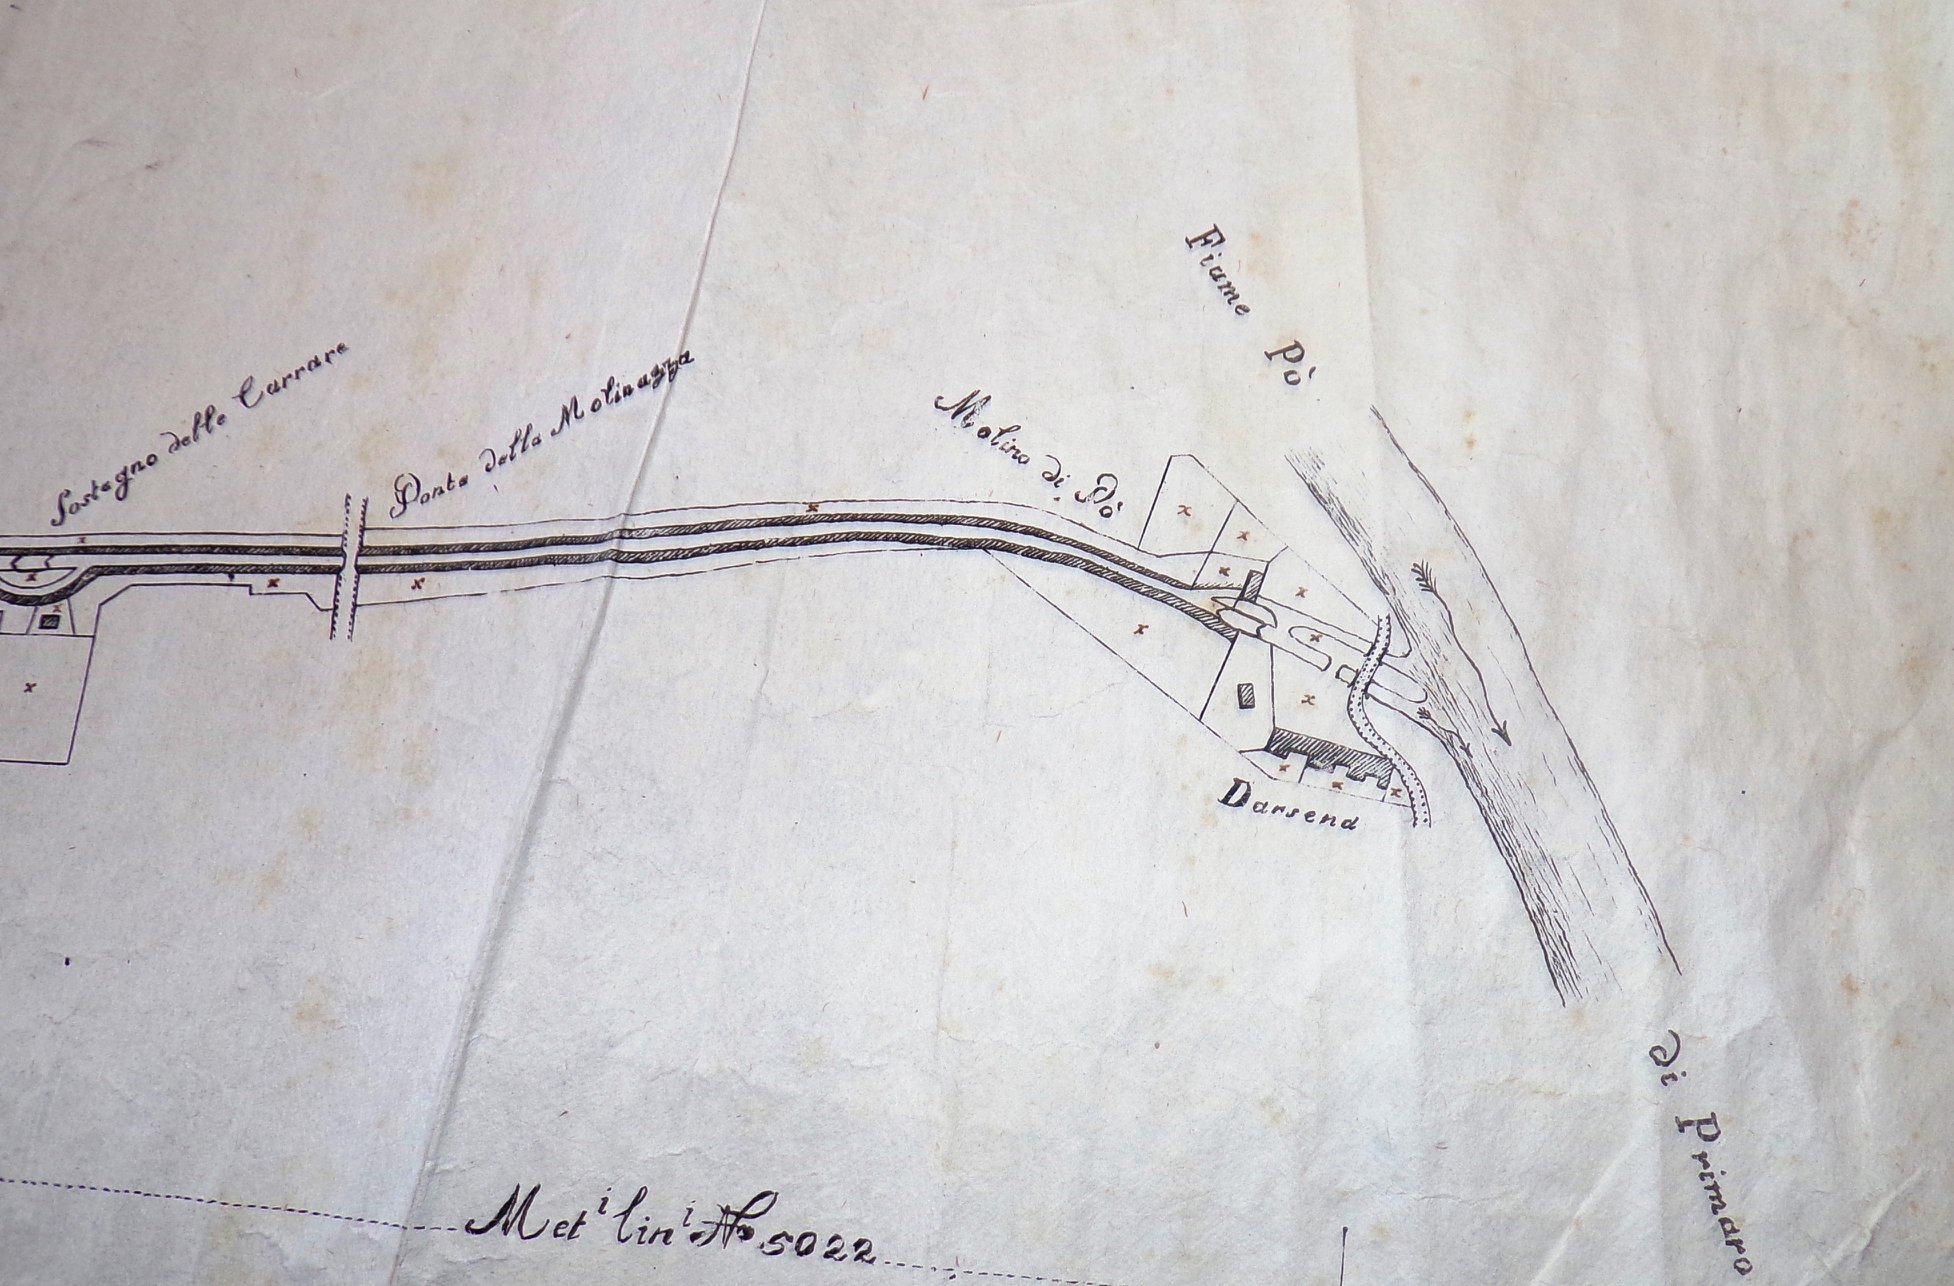 Sostegno delle Carrare
Ponte della Molinazza
Molino di Pò
Fiume Pò
di Primaro
Darsena
Metⁱ linⁱ No 5022